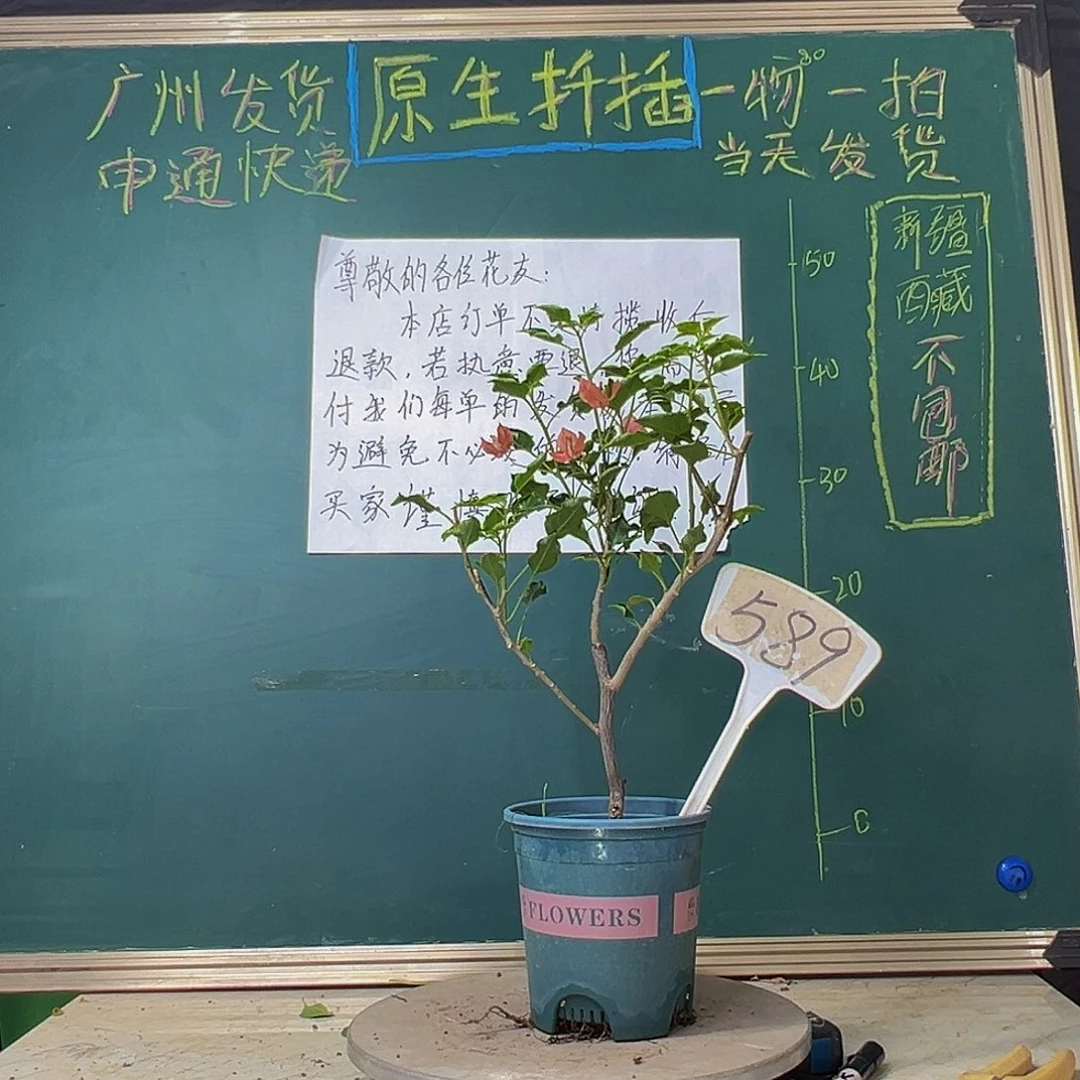 广州发货
原生扦插
一物一拍
80
申通快递
当天发货
新疆
西藏
不
包
邮
尊敬的各位花友:
本店订单不 持 收
退款,若执意要退 你 需
付我们每单的发
为避免不必
买家谨慎
50
40
30
20
10
0
589
FLOWERS